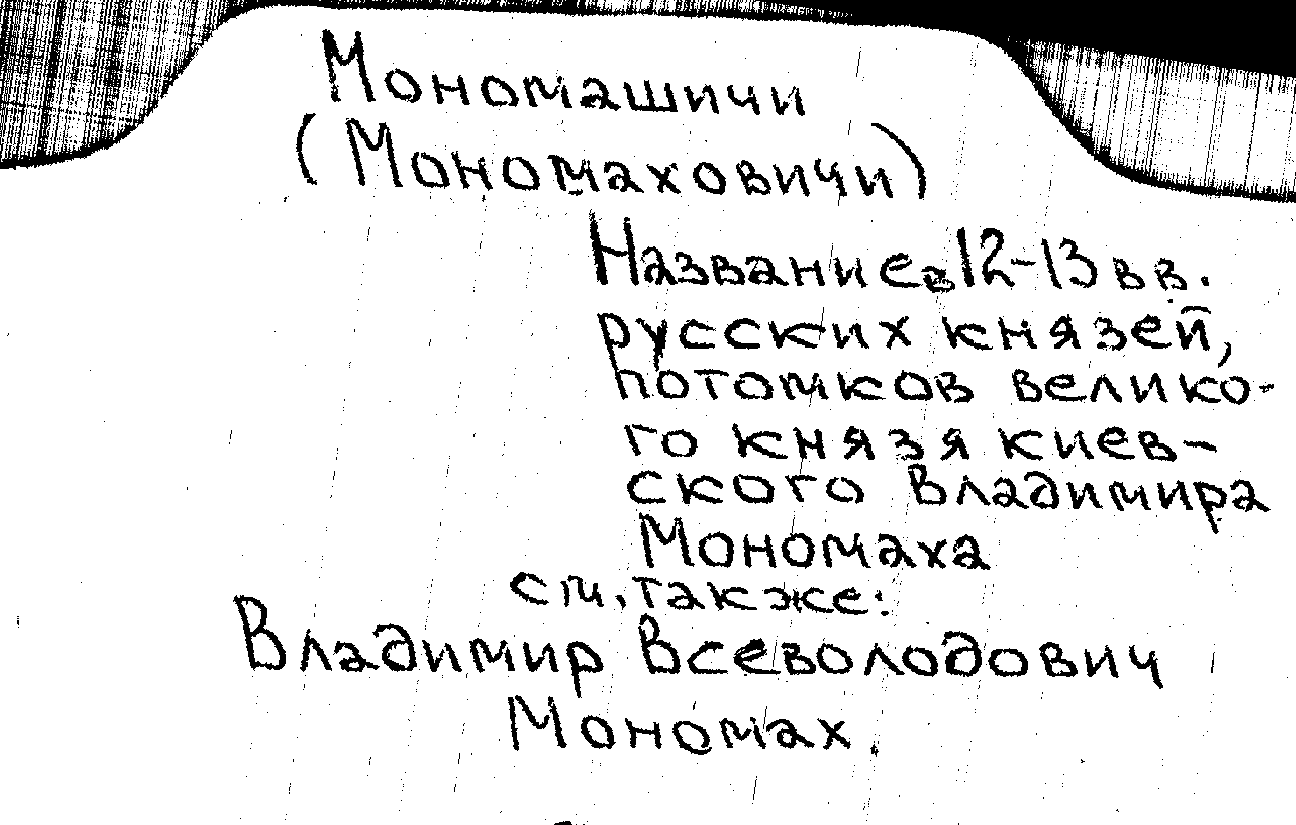 Мономашичи
(Мономаховичи)
Название в 12-13 вв.
русских князей,
потомков велико-
го князя киев-
ского Владимира
Мономаха
см. также:
Владимир Всеволодович
Мономах.